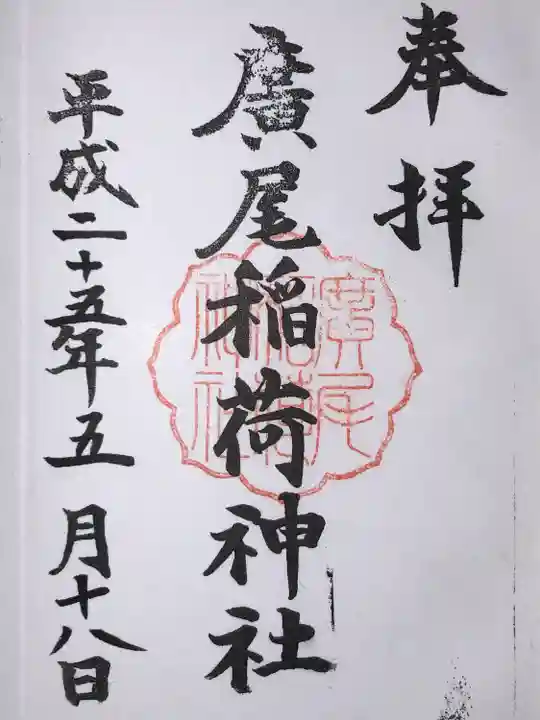 奉拝
廣尾稲荷神社
廣尾
稲荷
神社
平成二十五年五月十八日